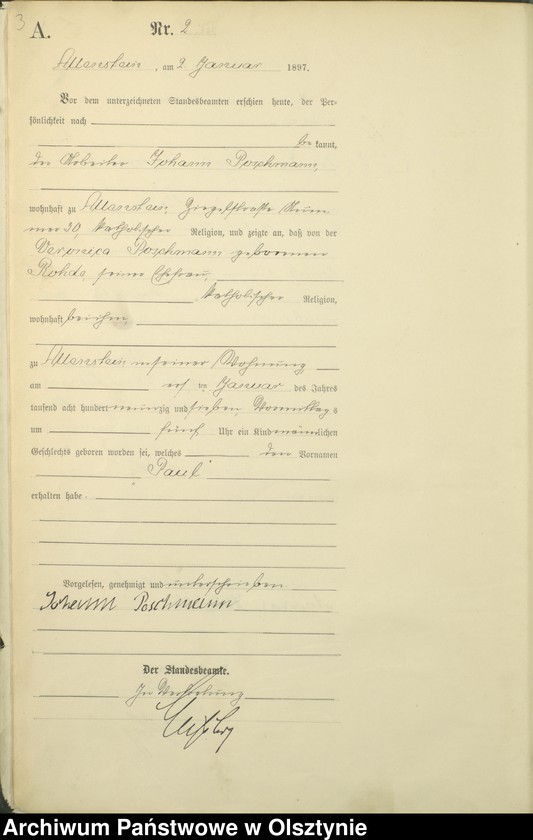 3
A. Nr. 2
Allenstein, am 2. Januar 1897.
Vor dem unterzeichneten Standesbeamten erschien heute, der Per-
sönlichkeit nach
be kannt,
der Arbeiter Johann Poschmann,
wohnhaft zu Allenstein, Num-
mer 30, katholischer Religion, und zeigte an, daß von der
Veronica Poschmann geborenen
Rohde, seine Ehefrau,
katholischer Religion,
wohnhaft bei ihm,
zu Allenstein in seiner Wohnung
am ersten Januar des Jahres
tausend acht hundert neunzig und sieben Vormittags
um fünf Uhr ein Kind männlichen
Geschlechts geboren worden sei, welches den Vornamen
Paul
erhalten habe.
Vorgelesen, genehmigt und unterschrieben
Johann Poschmann
Der Standesbeamte.
In Vertretung
Archiwum Państwowe w Olsztynie